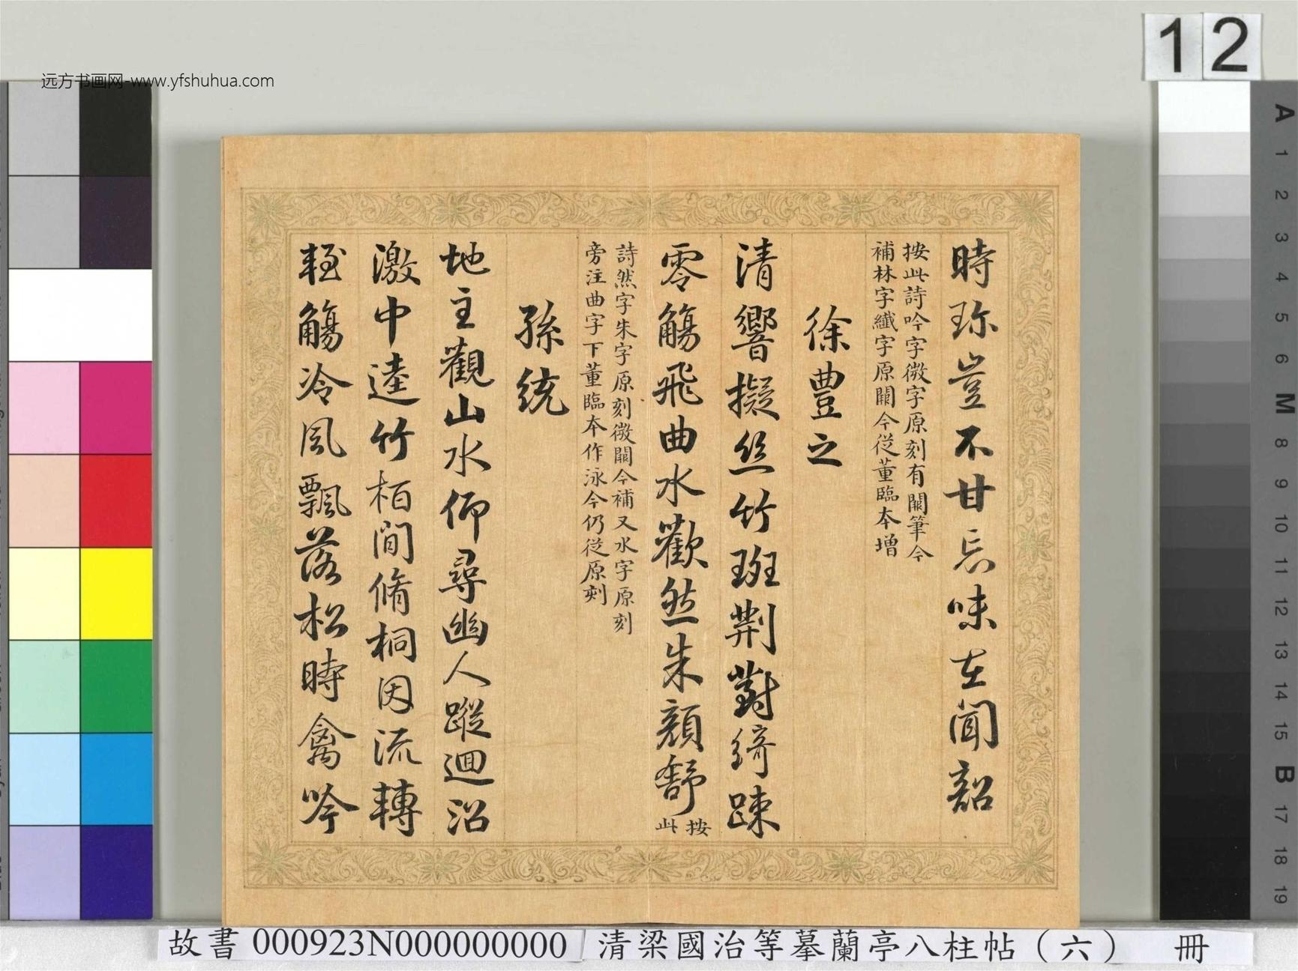 远方书画网-www.yfshuhua.com
12
時珎豈不甘忘味在聞韶
按此詩吟字微字原刻有闕筆今
補林字纖字原闕今從董臨本增
徐豊之
清響擬丝竹斑荆對綺踈
零觴飛曲水歡然朱顔舒
按此
詩然字朱字原刻微闕今補又水字原刻
旁注曲字下董臨本作泳今仍從原刻
孫統
地主觀山水仰尋幽人蹤迴沼
激中逵竹栢間脩桐因流轉
輊觴冷風飄落松時禽吟
A
1
2
3
4
5
6
M
8
9
10
11
12
13
14
15
B
17
18
19
故書 000923N000000000 清梁國治等摹蘭亭八柱帖（六） 冊